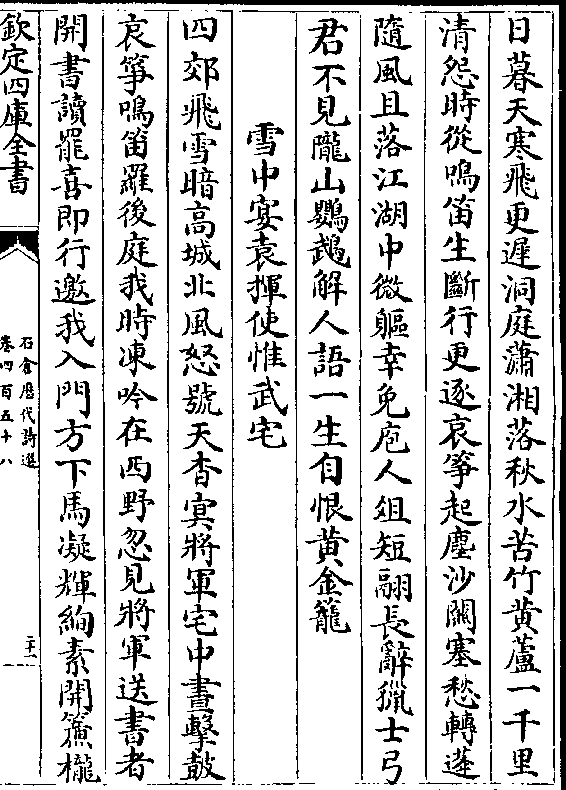 日暮天寒飛更遲洞庭瀟湘落秋水苦竹黄蘆一千里
清怨時從鳴笛生斷行更逐哀箏起塵沙關塞愁轉蓬
隨風且落江湖中微軀幸免庖人俎短翮長辭獵士弓
君不見隴山鸚鵡解人語一生自恨黄金籠
雪中宴袁揮使惟武宅
四郊飛雪暗高城北風怒號天杳冥將軍宅中晝擊鼓
哀箏鳴笛羅後庭我時凍吟在西野忽見將軍送書者
開書讀罷喜即行邀我入門方下馬凝輝絢素開簾櫳
欽定四庫全書
石倉歷代詩選
卷四百五十八
二十一